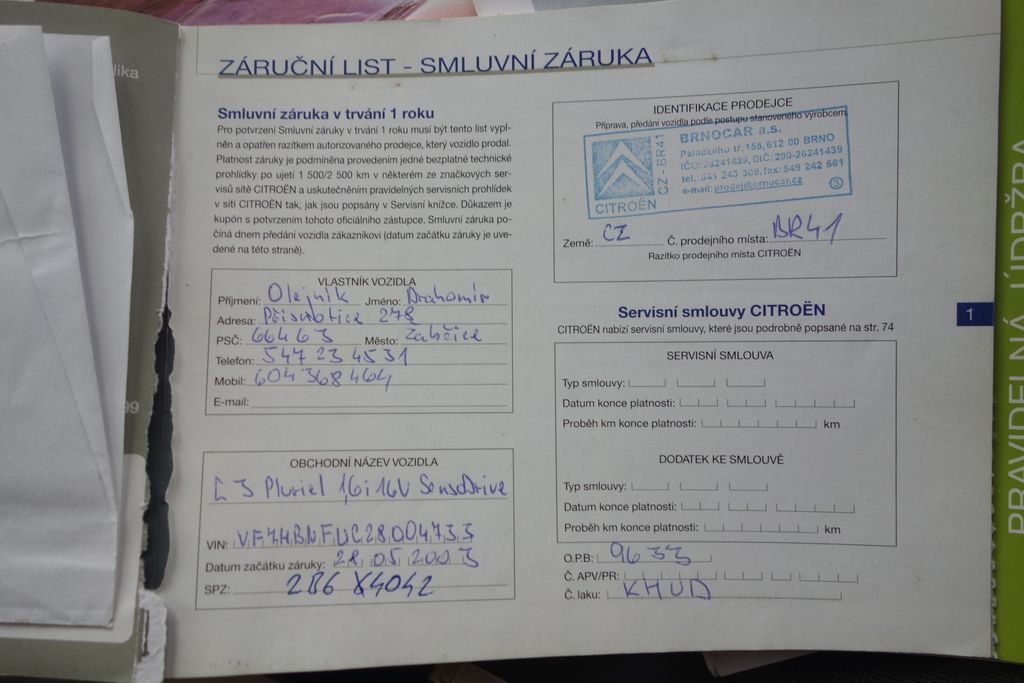 lika
99
ZÁRUČNÍ LIST - SMLUVNÍ ZÁRUKA
Smluvní záruka v trvání 1 roku
Pro potvrzení Smluvní záruky v trvání 1 roku musí být tento list vypl-
něn a opatřen razítkem autorizovaného prodejce, který vozidlo prodal.
Platnost záruky je podmíněna provedením jedné bezplatné technické
prohlídky po ujetí 1 500/2 500 km v některém ze značkových ser-
visů sítě CITROËN a uskutečněním pravidelných servisních prohlídek
v síti CITROËN tak, jak jsou popsány v Servisní knížce. Důkazem je
kupón s potvrzením tohoto oficiálního zástupce. Smluvní záruka po-
číná dnem předání vozidla zákazníkovi (datum začátku záruky je uve-
dené na této straně).
VLASTNÍK VOZIDLA
Příjmení: Olejník Jméno: Drahomír
Adresa: Přisnotice 278
PSČ: 66463 Město: Žabčice
Telefon: 547 23 4531
Mobil: 604 368 464
E-mail:
OBCHODNÍ NÁZEV VOZIDLA
C3 Pluriel 1,6i 16V SensoDrive
VIN: VF7HBNFUC28004733
Datum začátku záruky: 28 05 2003
SPZ: 2B6 X4042
IDENTIFIKACE PRODEJCE
Příprava, předání vozidla podle postupu stanoveného výrobcem
CITROËN
CZ - BR41
BRNOCAR a.s.
Palackého tř. 155, 612 00 BRNO
IČO: 26241439, DIČ: 290-26241439
tel.: 541 243 309, fax: 549 242 561
e-mail: prodej@brnocar.cz
3
Země: CZ Č. prodejního místa: BR41
Razítko prodejního místa CITROËN
Servisní smlouvy CITROËN
CITROËN nabízí servisní smlouvy, které jsou podrobně popsané na str. 74
SERVISNÍ SMLOUVA
Typ smlouvy:
Datum konce platnosti:
Proběh km konce platnosti: km
DODATEK KE SMLOUVĚ
Typ smlouvy:
Datum konce platnosti:
Proběh km konce platnosti: km
O.P.B: 9633
Č. APV/PR:
Č. laku: KHUD
1
PRAVIDELNÁ ÚDRŽBA